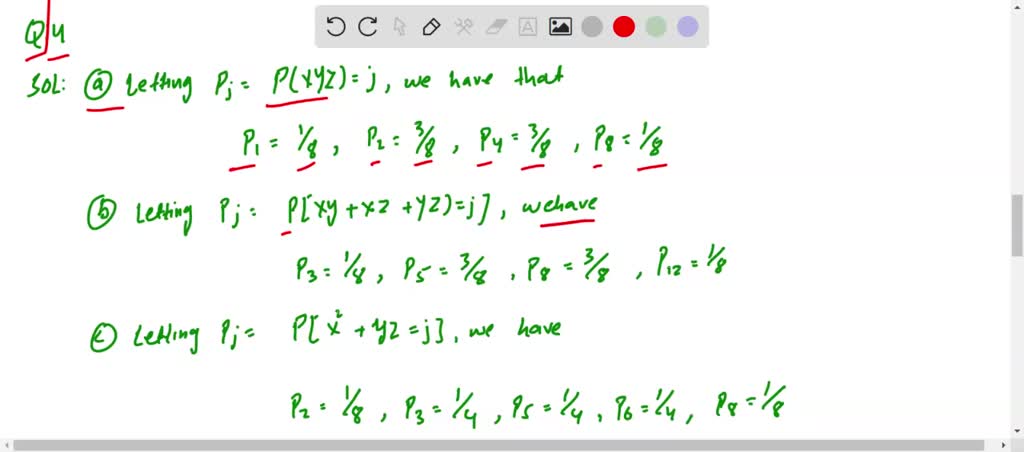 Q/4
SOL: ⓐ Letting Pj = P(XYZ)=j, we have that
P1 = 1/8, P2 = 3/8, P4 = 3/8, P8 = 1/8
ⓑ Letting Pj = P[XY + XZ + YZ)=j], we have
P3 = 1/8, P5 = 3/8, P8 = 3/8, P12 = 1/8
ⓒ Letting Pj = P[X² + YZ = j], we have
P2 = 1/8, P3 = 1/4, P5 = 1/4, P6 = 1/4, P8 = 1/8